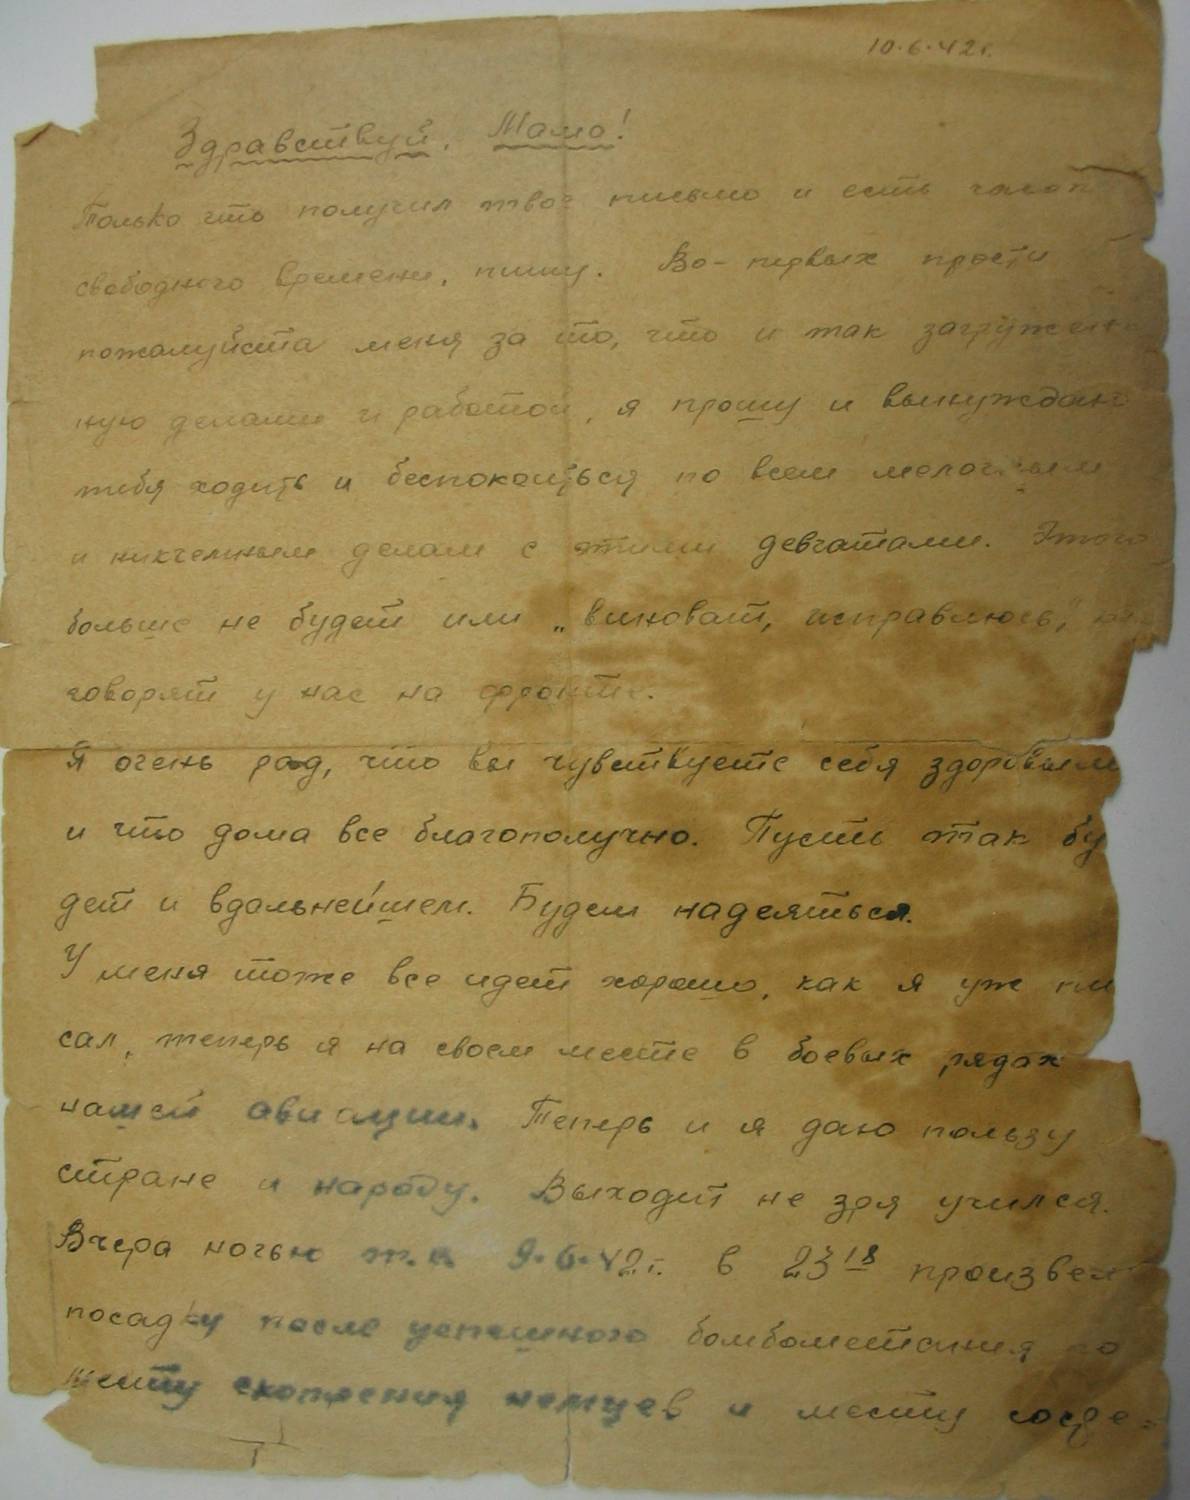 10.6.42г.
Здравствуй, Мама!
Только что получил твое письмо и есть
свободного времени, пишу. Во-первых прости
пожалуйста меня за то, что и так загружен
ную делами и работой, я прошу и вынуждаю
тебя ходить и беспокоиться по всем мелочным
и никчемным делам с этими девчатами. Этого
больше не будет или „виноват, исправлюсь,"
говорят у нас на фронте.
Я очень рад, что вы чувствуете себя здоровыми
и что дома все благополучно. Пусть так бу
дет и вдальнейшем. Будем надеяться.
У меня тоже все идет хорошо, как я уже пи
сал, теперь я на своем месте в боевых рядах
нашей авиации. Теперь и я даю пользу
стране и народу. Выходит не зря учился.
Вчера ночью т.е. 9.6.42г. в 23 18 произвел
посадку после успешного бомбометания по
месту скопления немцев и месту сосре-